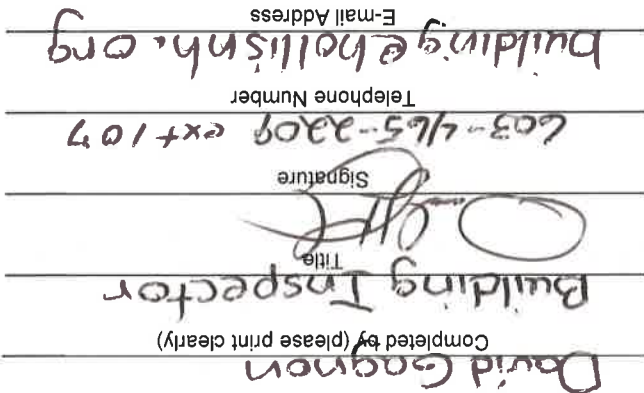 David Gagnon
Completed by (please print clearly)
Building Inspector
Title
Signature
603-465-2209 ext 107
Telephone Number
building@hollisnh.org
E-mail Address